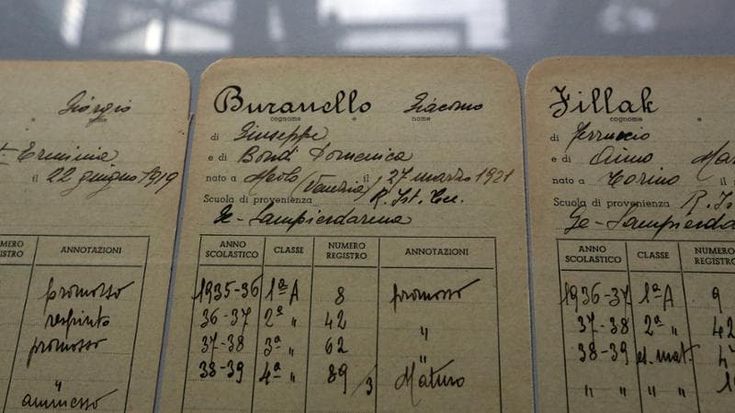 Giorgio
Erminia
il 22 giugno 1919
NUMERO REGISTRO ANNOTAZIONI
promosso
respinto
promosso
"
ammesso
Buranello Giacomo
cognome nome
di Giuseppe
e di Bondi Domenica
nato a Meolo (Venezia) il 27 marzo 1921
Scuola di provenienza R. Ist. Tec.
Ge-Sampierdarena
ANNO SCOLASTICO CLASSE NUMERO REGISTRO ANNOTAZIONI
1935-36 1ª A 8 promosso
36-37 2ª " 42 "
37-38 3ª " 62 "
38-39 4ª " 89/3 Maturo
Fillak
cognome
di Ferruccio
e di
nato a Torino
Scuola di provenienza R. Is
Ge-Sampierda
ANNO SCOLASTICO CLASSE NUMERO REGISTRO
1936-37 1ª A 9
37-38 2ª " 42
38-39 es. mat. 4
" " 1